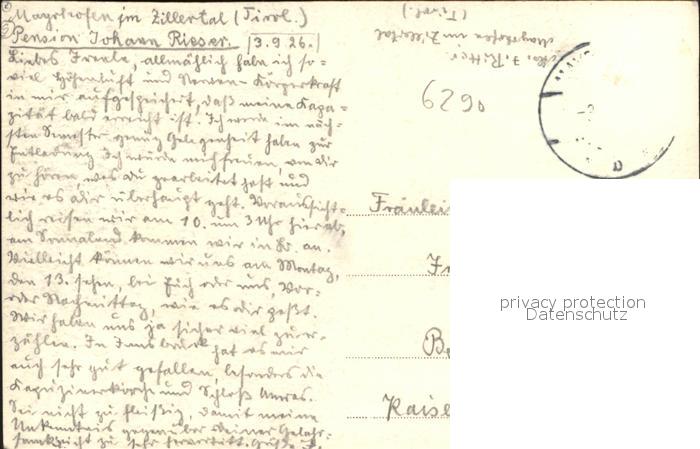 Mayrhofen im Zillertal (Tirol.)
Pension Johann Rieser. 3.9.26.
Liebes Irenle, allmählich habe ich so-
viel Höhenluft und Nerven- Körperkraft
in mir aufgespeichert, daß meine Kapa-
zität bald erreicht ist. Ich werde im näch-
sten Semester genug Gelegenheit haben zur
Entladung. Ich würde mich freuen, von Dir
zu hören, was du gearbeitet hast, und
wie es dir überhaupt geht. Voraussicht-
lich reisen wir am 10. um 3 Uhr hier ab,
am Sonnabend kommen wir in Br. an.
Vielleicht können wir uns am Montag,
den 13. sehen, bei Euch oder uns, Vor-
oder Nachmittag, wie es dir paßt.
Wir haben uns ja sicher viel zu er-
zählen. In Innsbruck hat es mir
auch sehr gut gefallen, besonders die
Kapuzinerkirche und Schloß Amras.
Sei nicht zu fleißig, damit meine
Unkenntnis gegenüber deiner Gelehr-
samkeit zu sehr hervortritt.
J. Ritter
Mayrhofen im Zillertal
(Tirol.)
6290
Fräulei
Kaise
privacy protection
Datenschutz